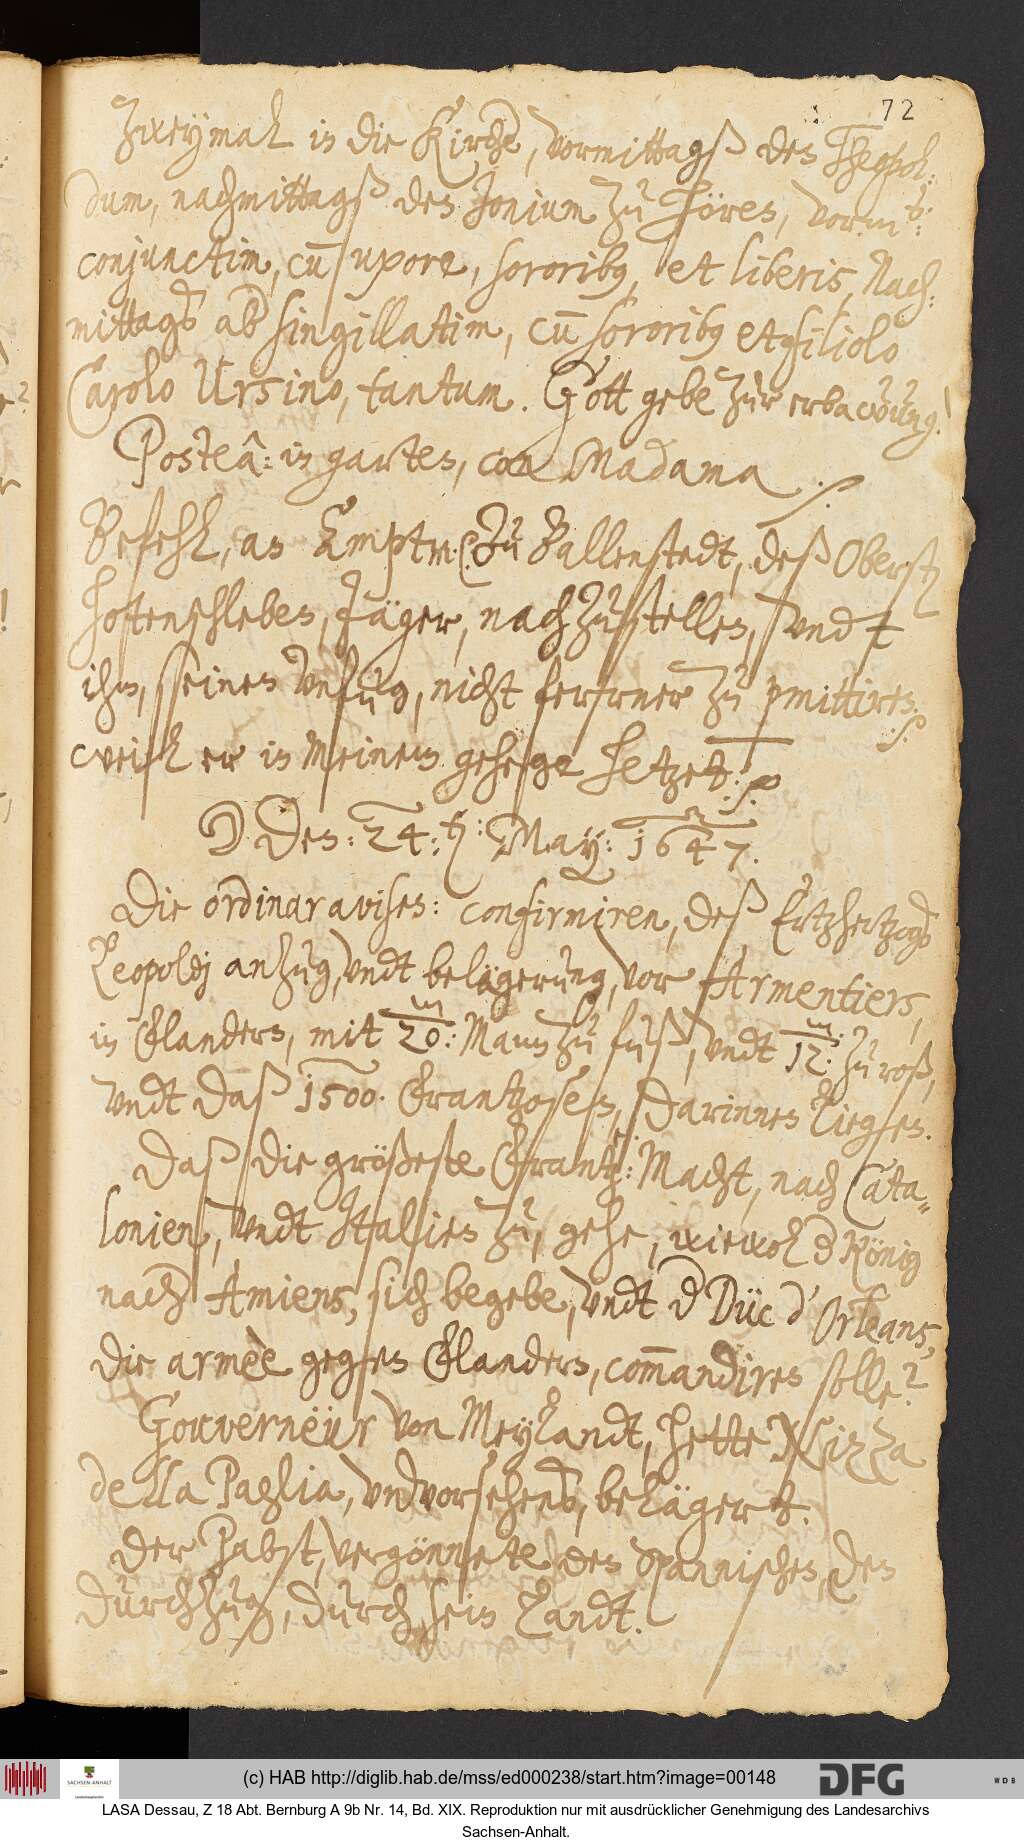 72
Zweymal in die Kirche, vormittagß den Theopol:
dum, nachmittagß den Jonium zu hören, vorm.s:
conjunctim, cũ uxore, sororibq, et liberis, Nach:
mittags ab singillatim, cũ sororibq et filiolo
Carolo Ursino, tantum. Gott gebe zur erbawung!
Posteà: in garten, con Madama ./.
Befehl, an Amptm: zu Ballenstedt, deß Oberst
Jäger, nachzustellen, vnd
ihm, seinen vnfug, nicht ferrner zu pmittiren
weil er in Meinem gehege hetzet. ./.
☽ den: 24. ten: May: 1647.
Die ordinar avisen: confirmiren, deß Ertzhertzogs
Leopoldj anzug, vndt belägerung, vor Armentiers,
in Flandern, mit 20: m Mann zu fuß, vndt 12: m zu roß,
vndt daß 1500. Frantzosen, darinnen liegen.
Daß die größeste Frantz: Macht, nach Cata„
lonien, vndt Italien zu, gehe, wiewol d König
nach Amiens, sich begebe, vndt d Düc d'Orleans,
die armèe gegen Flandern, commandiren solle?
Gouverneur von Meylandt, hette Nizza
della Paglia, vnvorsehens, belägert.
Der Pabst, vergönnete den Spannischen, den
durchzug, durch sein Landt.
(c) HAB http://diglib.hab.de/mss/ed000238/start.htm?image=00148
SACHSEN-ANHALT
DFG
WDB
LASA Dessau, Z 18 Abt. Bernburg A 9b Nr. 14, Bd. XIX. Reproduktion nur mit ausdrücklicher Genehmigung des Landesarchivs
Sachsen-Anhalt.